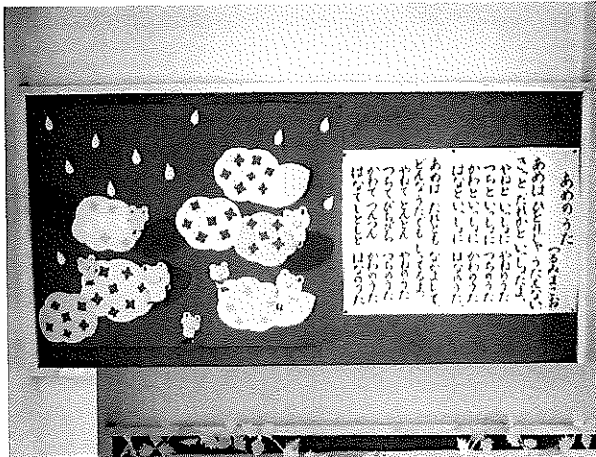 あめのうた
つるみまさお
あめは ひとりじゃ うたえない、
きっと だれかと いっしょだよ。
やねと いっしょに やねのうた
つちと いっしょに つちのうた
かわと いっしょに かわのうた
はなと いっしょに はなのうた
あめは だれとも なかよしで
どんな うたでも しってるよ
やねで とんとん やねのうた
つちで ぴちぴち つちのうた
かわで つんつん かわのうた
はなで しとしと はなのうた